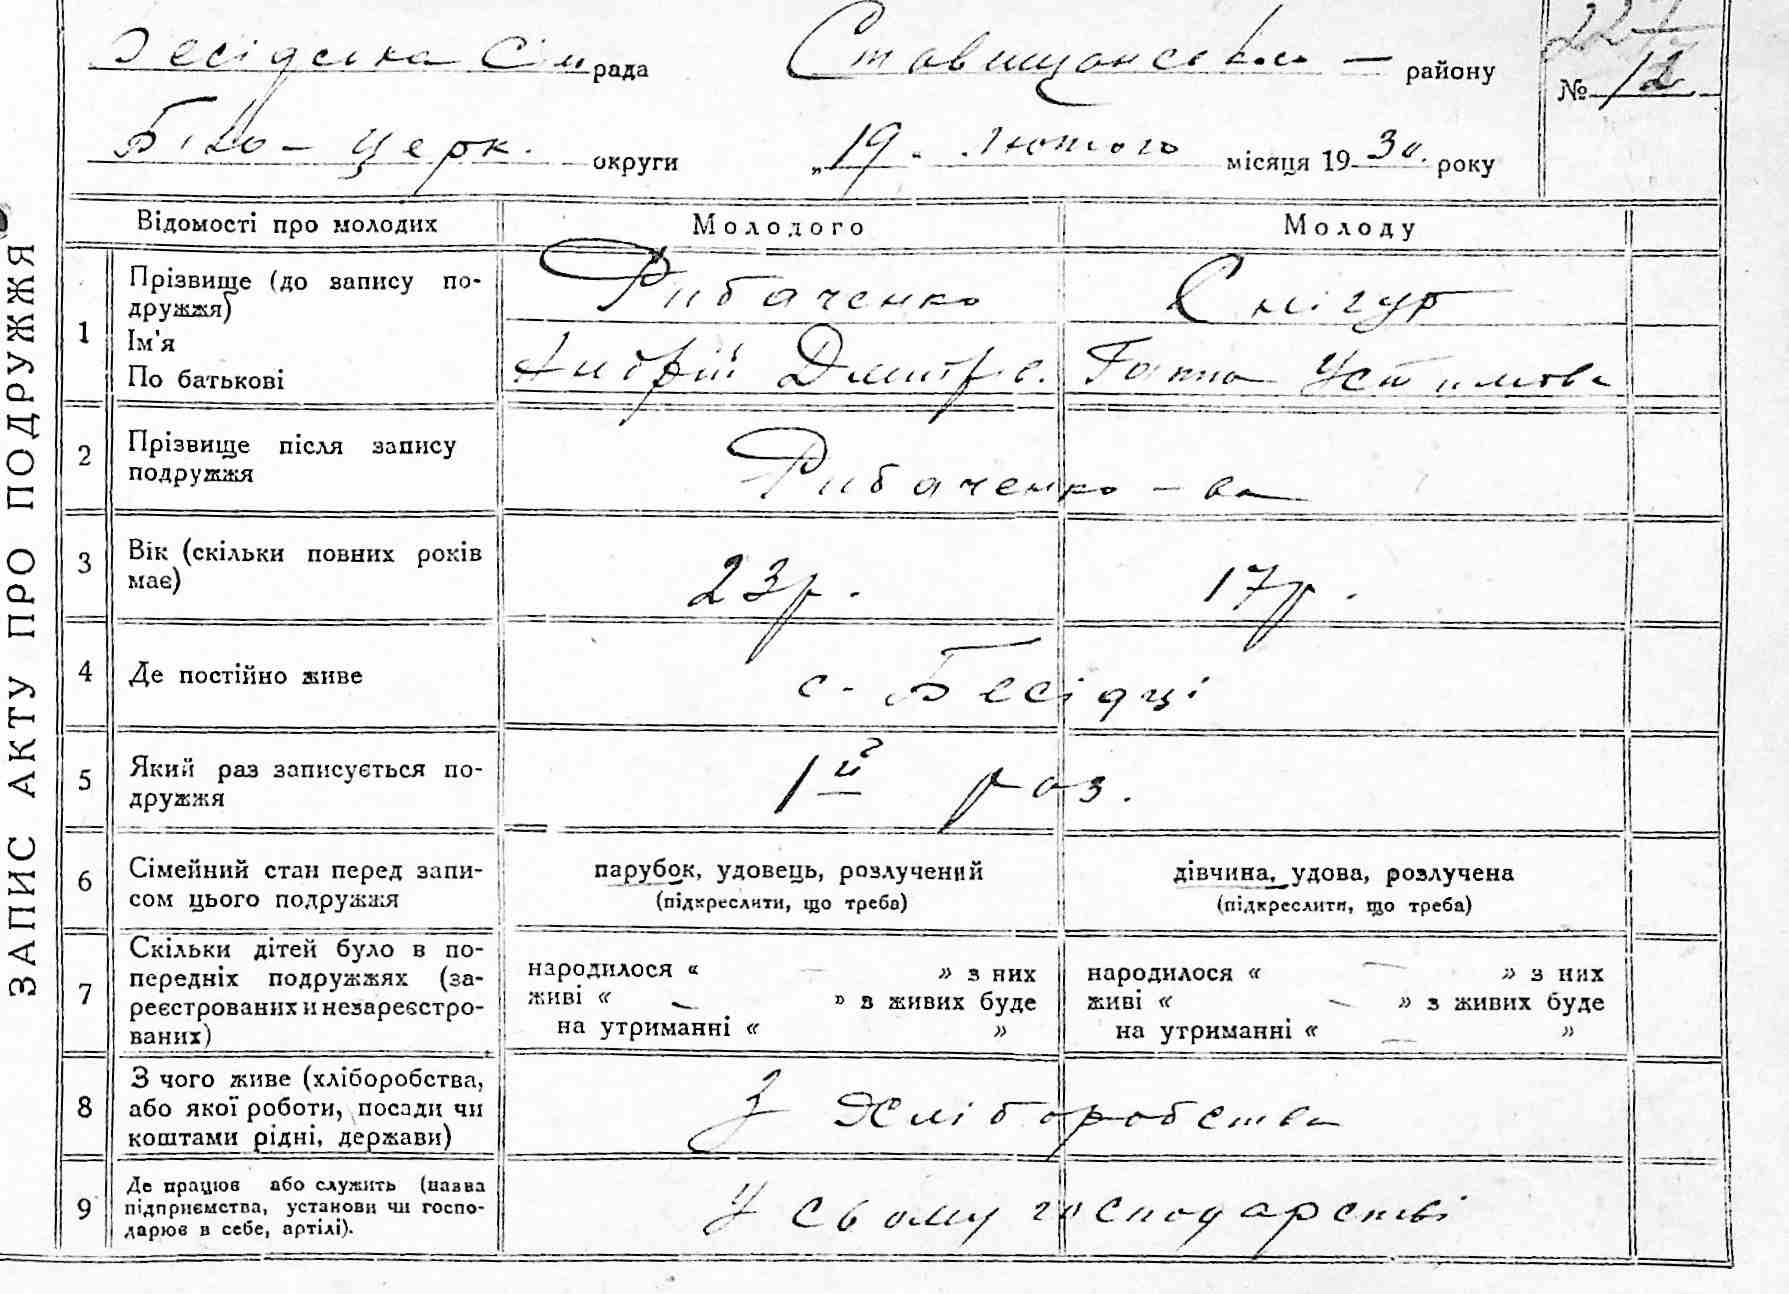 Бесідська Сіл рада Ставищанського — району
№ 12
Біло-Церк. округи „19. лютого місяця 1930. року
ЗАПИС АКТУ ПРО ПОДРУЖЖЯ
Відомості про молодих Молодого Молоду
1 Прізвище (до запису по-
дружжя) Рибаченко Снігур
Ім'я
По батькові Андрій Дмитр.в. Ганна Устимова
2 Прізвище після запису
подружжя Рибаченко - ва
3 Вік (скільки повних років
має) 23р. 17р.
4 Де постійно живе с. Бесідці
5 Який раз записується по-
дружжя 1й раз.
6 Сімейний стан перед запи-
сом цього подружжя
парубок, удовець, розлучений
(підкреслити, що треба)
дівчина, удова, розлучена
(підкреслити, що треба)
7 Скільки дітей було в по-
передніх подружжях (за-
реєстрованих и незареєстро-
ваних)
народилося « — » з них
живі « — » з живих буде
на утриманні « »
народилося « — » з них
живі « — » з живих буде
на утриманні « — »
8 З чого живе (хліборобства,
або якої роботи, посади чи
коштами рідні, держави)
З Хліборобства
9 Де працює або служить (назва
підприємства, установи чи госпо-
дарює в себе, артілі).
У свому господарстві